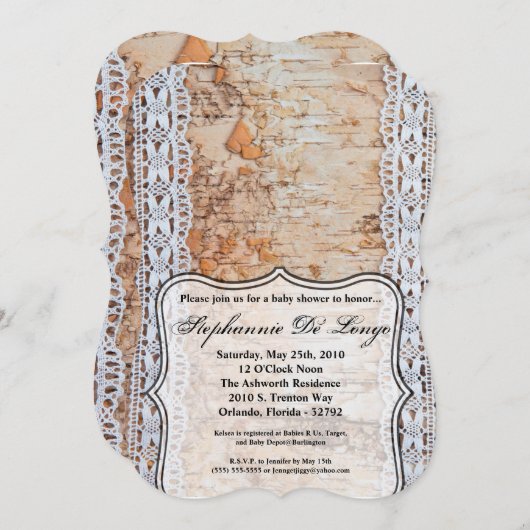 Please join us for a baby shower to honor...
Stephannie De Longo
Saturday, May 25th, 2010
12 O'Clock Noon
The Ashworth Residence
2010 S. Trenton Way
Orlando, Florida - 32792
Kelsea is registered at Babies R Us, Target,
and Baby Depot@Burlington
R.S.V.P. to Jennifer by May 15th
(555) 555-5555 or Jenngetjiggy@yahoo.com